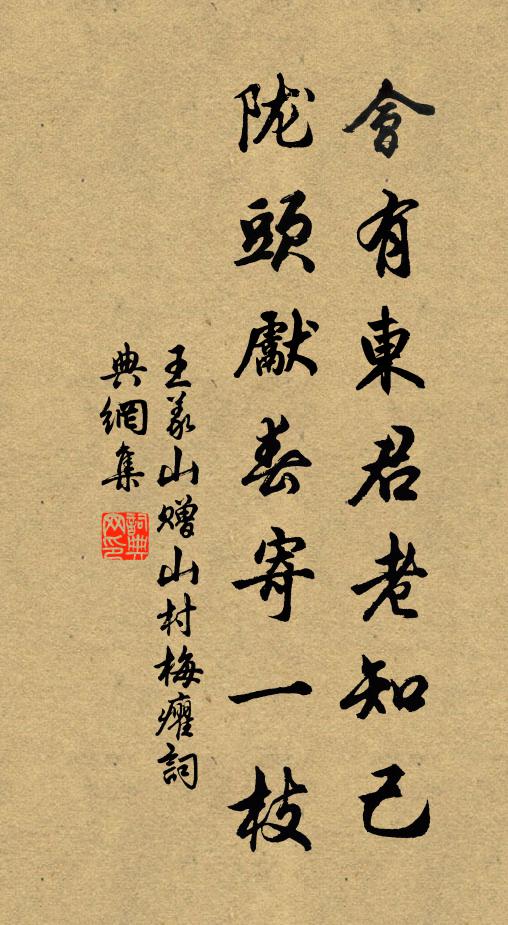 會有東君老知己
陇頭獻春寄一枝
王义山贈山村梅癯詞
典網集
詞典网印